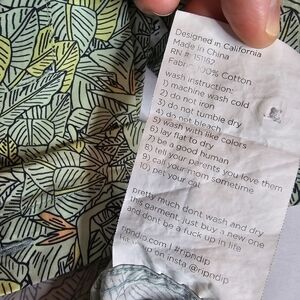 Designed in California
Made in China
RN #: 151162
Fabric: 100% Cotton
wash instruction:
1) machine wash cold
2) do not iron
3) do not tumble dry
4) do not bleach
5) wash with like colors
6) lay flat to dry
7) be a good human
8) tell your parents you love them
9) call your mom sometime
10) pet your cat
pretty much dont wash and dry
this garment, just buy a new one
and dont be a fuck up in life
ripndip.com | #ripndip
hit us up on insta @ripndip